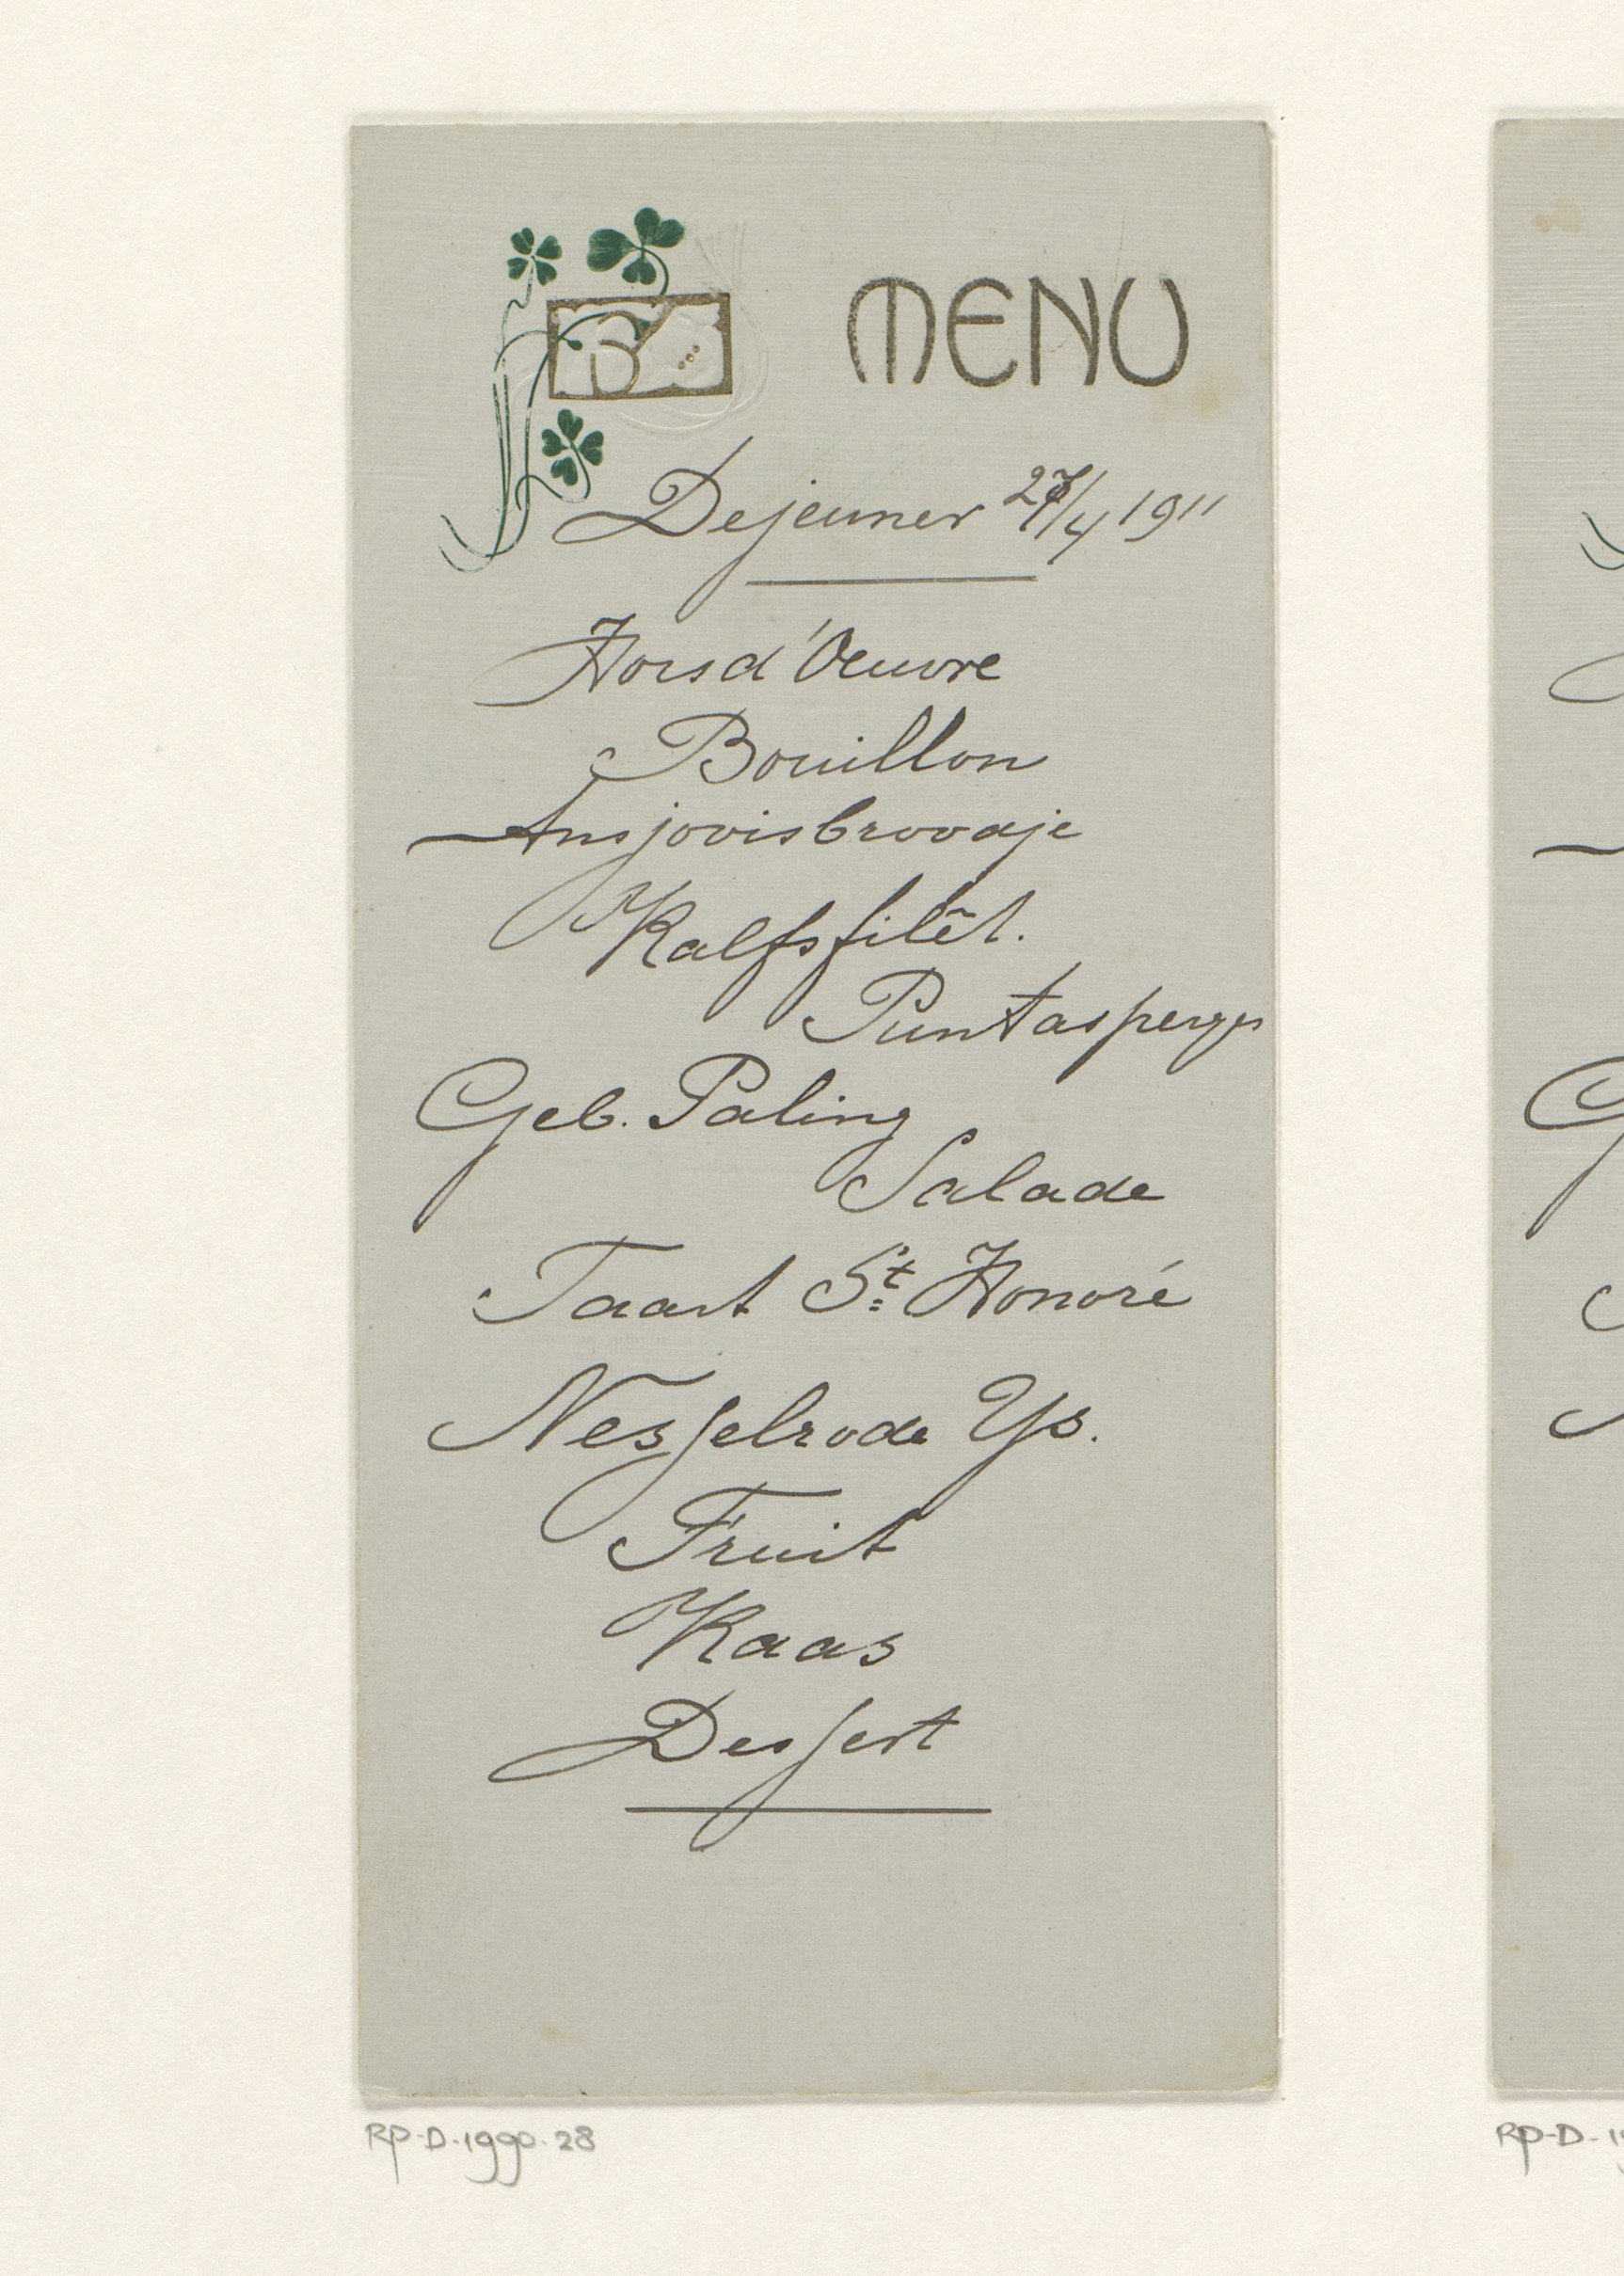 MENU
Dejeuner 27/4 1911
Hors d'Oeuvre
Bouillon
Ansjovisbroodje
Kalfsfilêt.
Puntasperges
Geb. Paling
Salade
Taart St Honoré
Nesselrode Ys.
Fruit
Kaas
Dessert
RP-D-1990-28
RP-D-